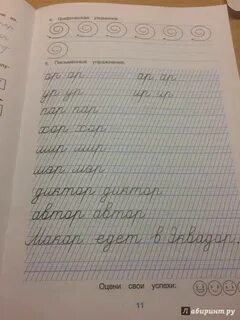 4. Графические упражнения.
5. Письменные упражнения.
ор ор ар ар
ур ур ир ир
пар пар
хор хор
мир мир
мэр мэр
диктор диктор
автор автор
Макар едет в Эквадор.
Оцени свои успехи:
11
Лабиринт.ру